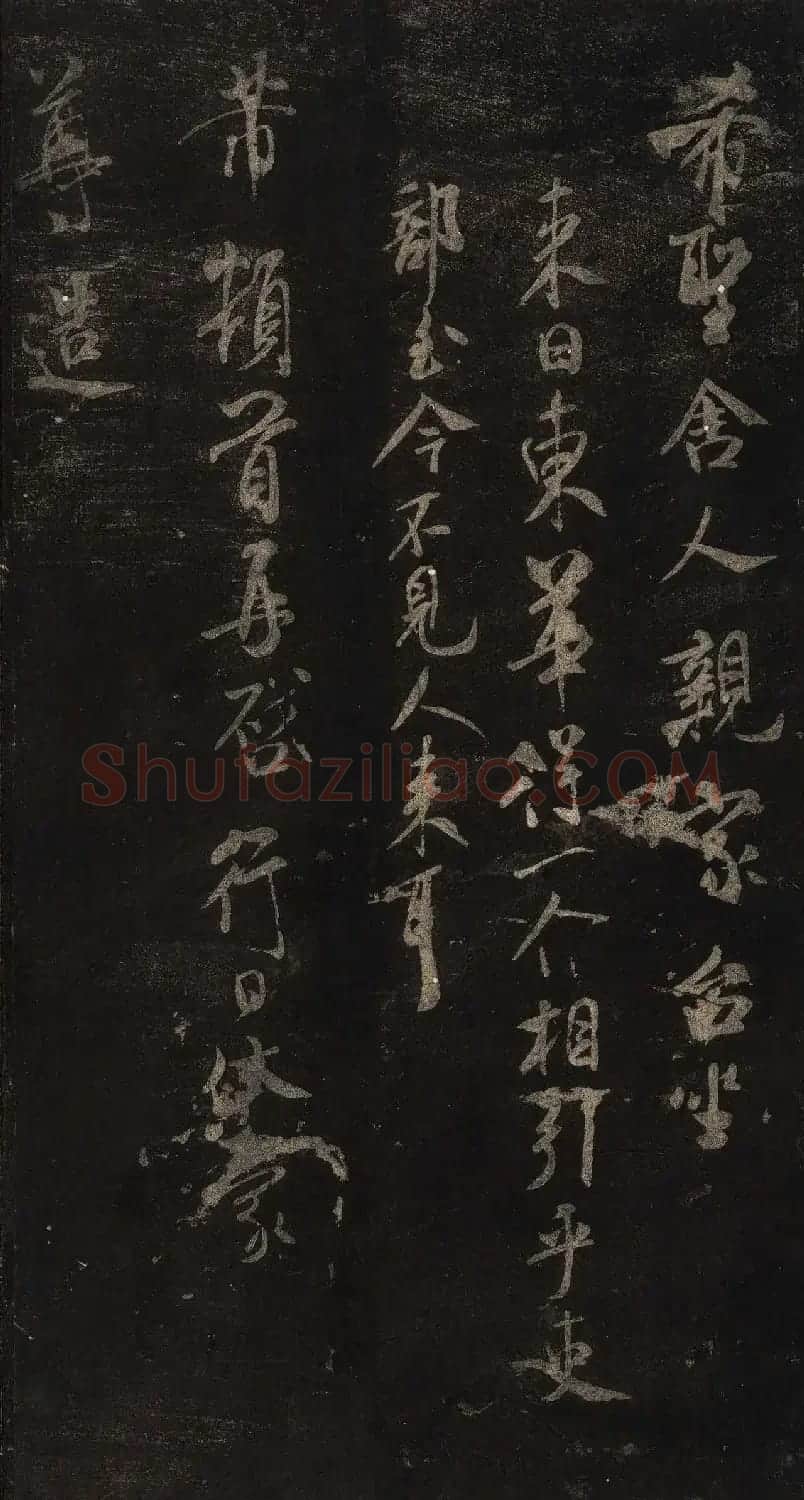 希聖舍人親家台坐
来日東華得一个相引乎吏
部至今不見人来耳
芾頓首再啓 行日蒙
尊造
Shufaziliao.COM